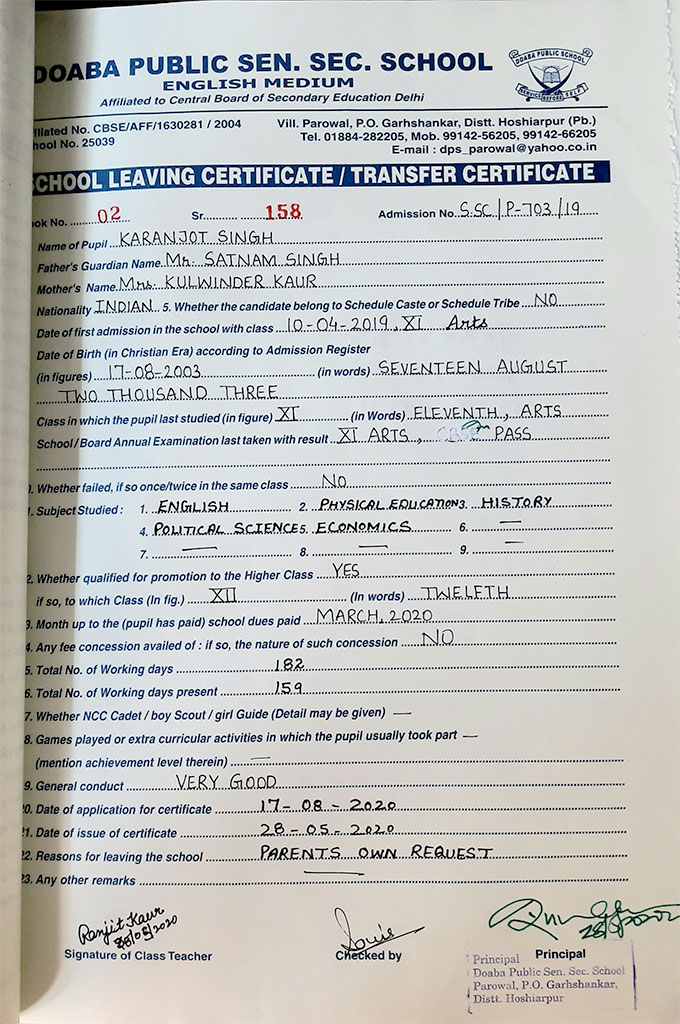 DOABA PUBLIC SEN. SEC. SCHOOL
ENGLISH MEDIUM
Affiliated to Central Board of Secondary Education Delhi
DOABA PUBLIC SCHOOL
SERVICE BEFORE SELF
iliated No. CBSE/AFF/1630281 / 2004
hool No. 25039
Vill. Parowal, P.O. Garhshankar, Distt. Hoshiarpur (Pb.)
Tel. 01884-282205, Mob. 99142-56205, 99142-66205
E-mail : dps_parowal@yahoo.co.in
SCHOOL LEAVING CERTIFICATE / TRANSFER CERTIFICATE
ok No. 02 Sr. 158 Admission No. S.SC/P-703/19
Name of Pupil KARANJOT SINGH
Father's Guardian Name Mr. SATNAM SINGH
Mother's Name Mrs. KULWINDER KAUR
Nationality INDIAN 5. Whether the candidate belong to Schedule Caste or Schedule Tribe NO
Date of first admission in the school with class 10-04-2019, XI Arts
Date of Birth (in Christian Era) according to Admission Register
(in figures) 17-08-2003 (in words) SEVENTEEN AUGUST
TWO THOUSAND THREE
Class in which the pupil last studied (in figure) XI (in Words) ELEVENTH, ARTS
School / Board Annual Examination last taken with result XI ARTS, PASS
. Whether failed, if so once/twice in the same class NO
1. Subject Studied : 1. ENGLISH 2. PHYSICAL EDUCATION 3. HISTORY
4. POLITICAL SCIENCE 5. ECONOMICS 6. —
7. — 8. — 9. —
2. Whether qualified for promotion to the Higher Class YES
if so, to which Class (In fig.) XII (In words) TWELFTH
3. Month up to the (pupil has paid) school dues paid MARCH, 2020
4. Any fee concession availed of : if so, the nature of such concession NO
5. Total No. of Working days 182
6. Total No. of Working days present 159
7. Whether NCC Cadet / boy Scout / girl Guide (Detail may be given) —
8. Games played or extra curricular activities in which the pupil usually took part —
(mention achievement level therein) —
9. General conduct VERY GOOD
20. Date of application for certificate 17-08-2020
21. Date of issue of certificate 28-05-2020
22. Reasons for leaving the school PARENTS OWN REQUEST
23. Any other remarks —
Ranjit Kaur
Signature of Class Teacher
Checked by
Principal
Principal
Doaba Public Sen. Sec. School
Parowal, P.O. Garhshankar,
Distt. Hoshiarpur